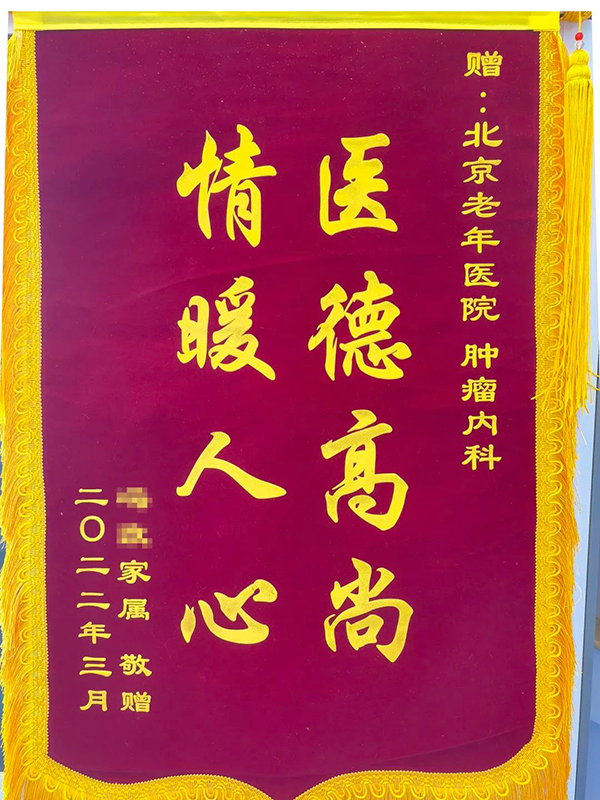 赠：北京老年医院 肿瘤内科
医德高尚
情暖人心
家属 敬赠
二〇二二年三月